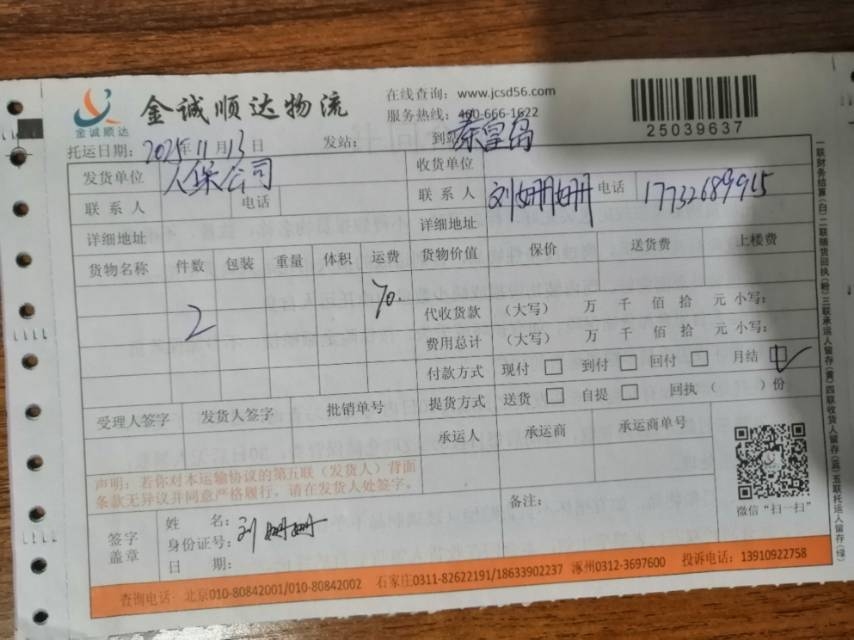 金诚顺达
金诚顺达物流
在线查询：www.jcsd56.com
服务热线：400-666-1622
25039637
托运日期：2025年11月13日 发站： 到站 秦皇岛
发货单位 人保公司 收货单位
联系人 电话 联系人 刘姗姗 电话 17732689915
详细地址 详细地址
货物名称 件数 包装 重量 体积 运费 货物价值 保价 送货费 上楼费
2 70.
代收货款 （大写） 万 千 佰 拾 元 小写：
费用总计 （大写） 万 千 佰 拾 元 小写：
付款方式 现付 □ 到付 □ 回付 □ 月结 □✓
受理人签字 发货人签字 批销单号 提货方式 送货 □ 自提 □ 回执（ ）份
承运人 承运商 承运商单号
声明：若你对本运输协议的第五联（发货人）背面
条款无异议并同意严格履行，请在发货人处签字。
签字
盖章
姓 名：刘姗姗
身份证号：
日 期：
备注：
微信“扫一扫”
查询电话：北京010-80842001/010-80842002 石家庄0311-82622191/18633902237 涿州0312-3697600 投诉电话：13910922758
一联财务结算（白）二联随货回执（粉）三联承运人留存（黄）四联收货人留存（蓝）五联托运人留存（绿）